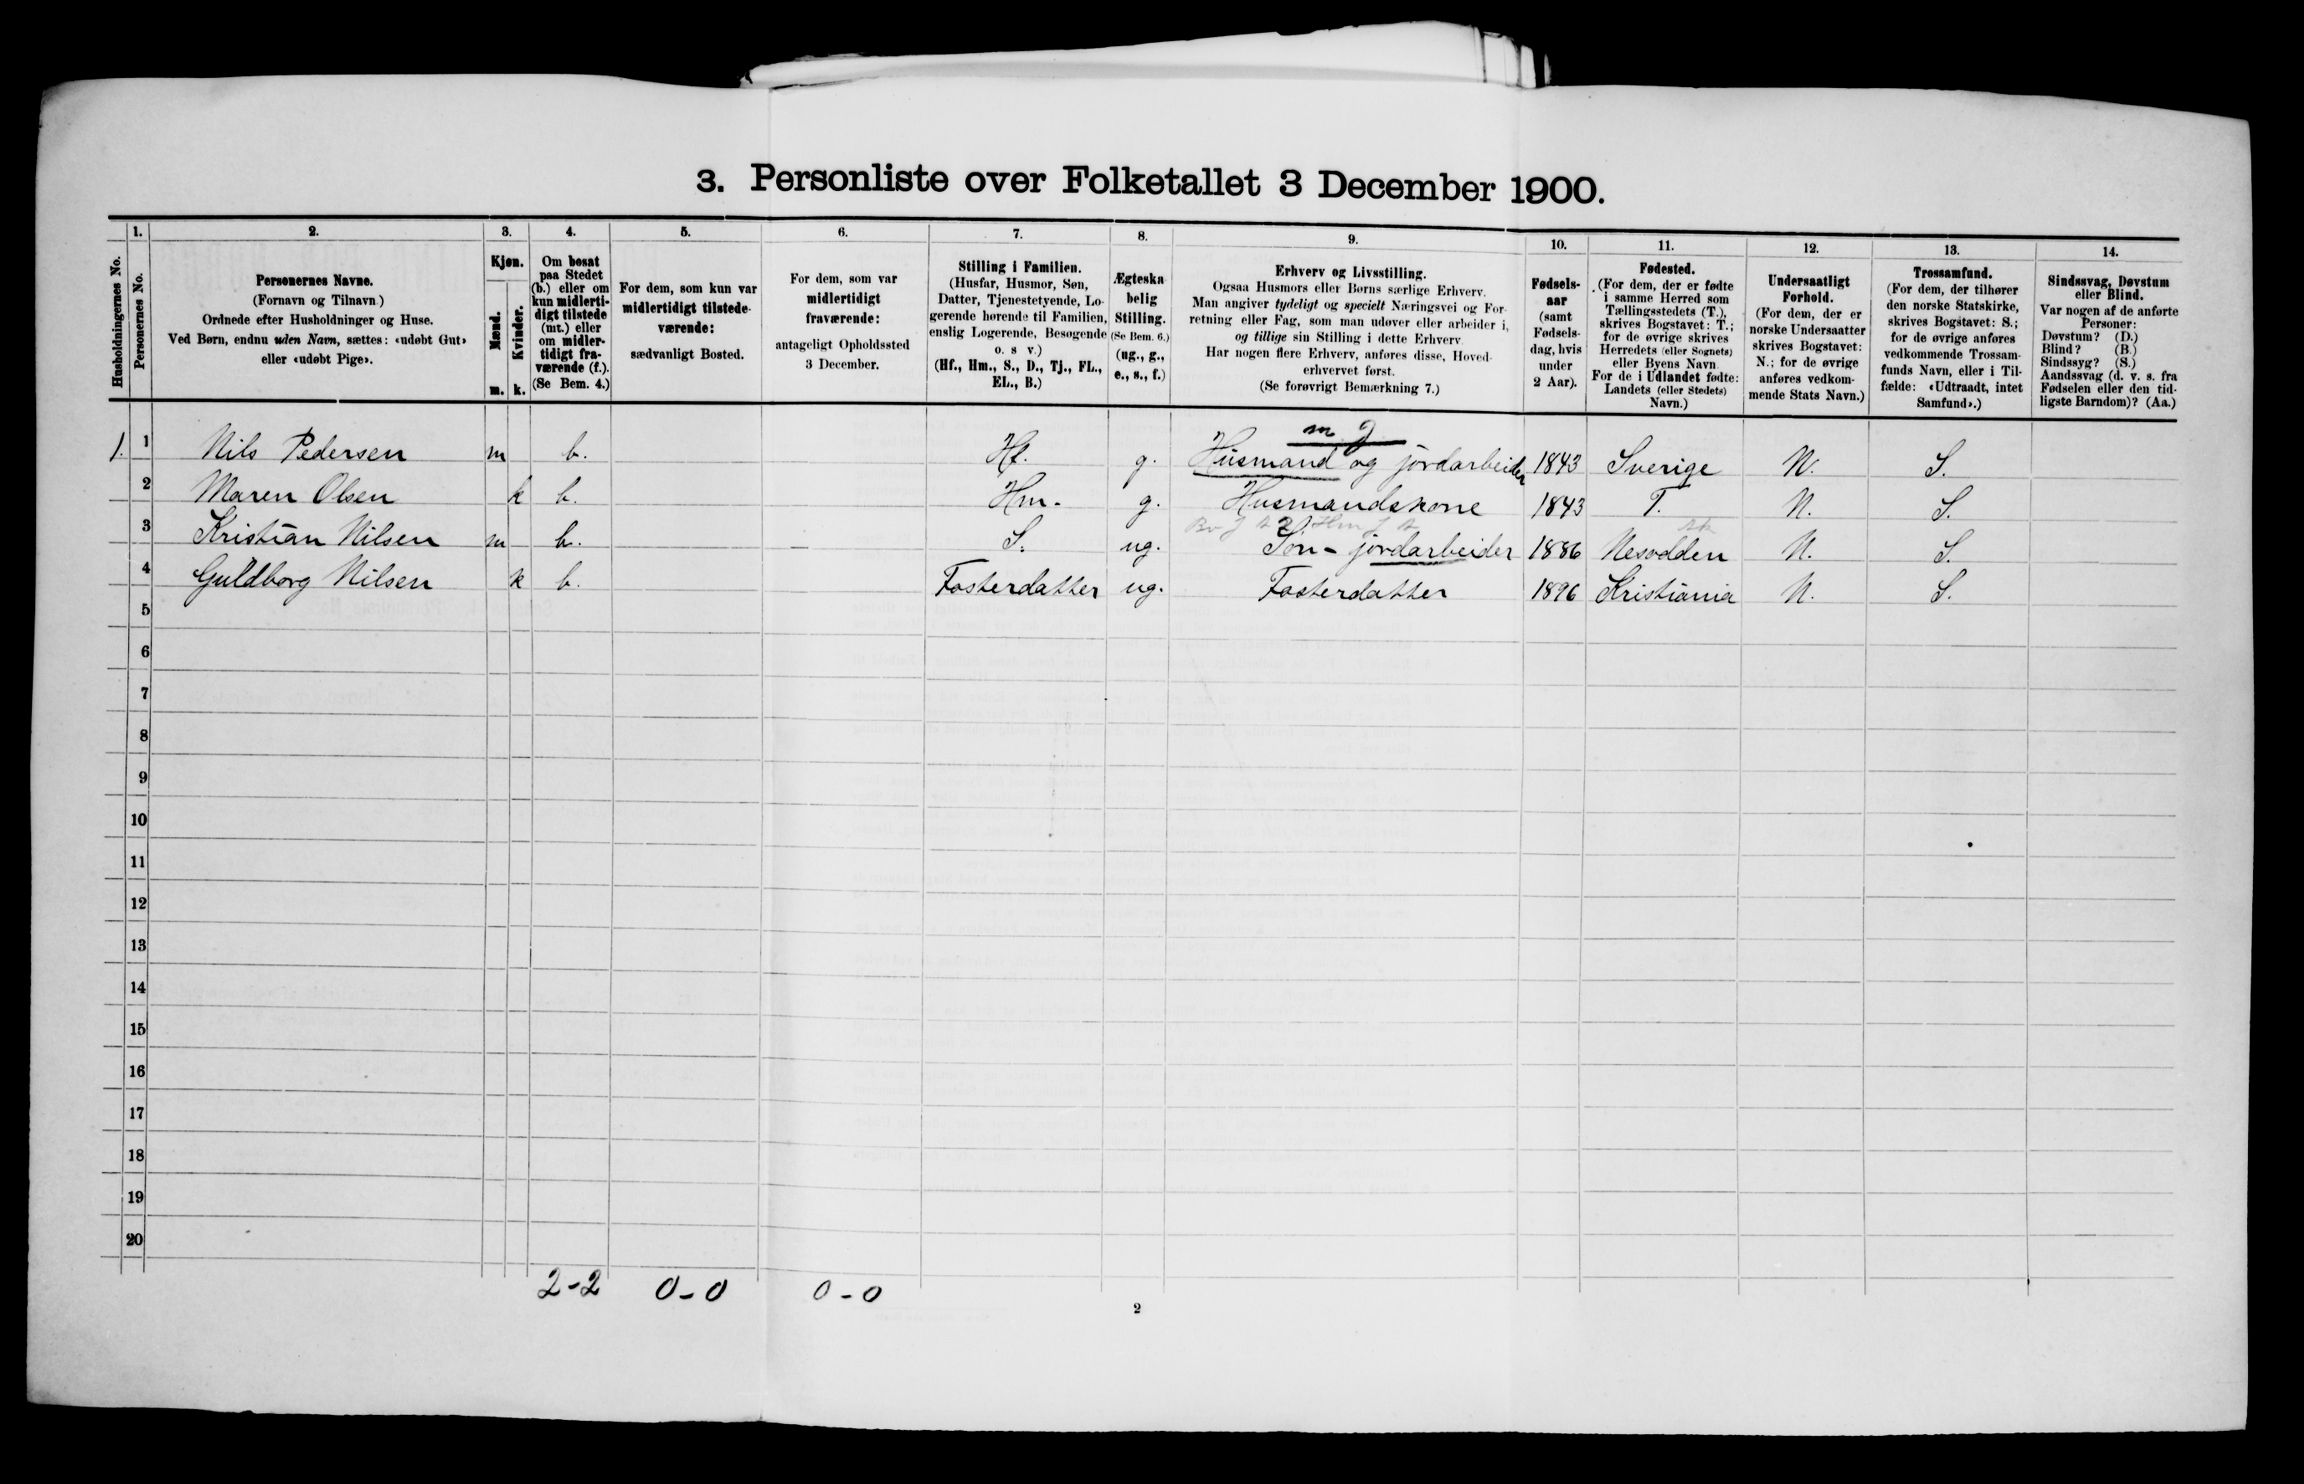 3. Personliste over Folketallet 3 December 1900.
1. 2. 3. 4. 5. 6. 7. 8. 9. 10. 11. 12. 13. 14.
Husholdningernes No.
Personernes No.
Personernes Navne.
(Fornavn og Tilnavn)
Ordnede efter Husholdninger og Huse.
Ved Børn, endnu uden Navn, sættes: «udøbt Gut»
eller «udøbt Pige».
Kjøn.
Mænd.
Kvinder.
m. k.
Om bosat
paa Stedet
(b.) eller om
kun midlerti-
digt tilstede
(mt.) eller
om midler-
tidigt fra-
værende (f.).
(Se Bem. 4.)
For dem, som kun var
midlertidigt tilstede-
værende:
sædvanligt Bosted.
For dem, som var
midlertidigt
fraværende:
antageligt Opholdssted
3 December.
Stilling i Familien.
(Husfar, Husmor, Søn,
Datter, Tjenestetyende, Lo-
gerende hørende til Familien,
enslig Logerende, Besøgende
o. s v.)
(Hf., Hm., S., D., Tj., FL.,
EL., B.)
Ægteska-
belig
Stilling.
(Se Bem. 6.)
(ug., g.,
e., s., f.)
Erhverv og Livsstilling.
Ogsaa Husmors eller Børns særlige Erhverv.
Man angiver tydeligt og specielt Næringsvei og For-
retning eller Fag, som man udøver eller arbeider i,
og tillige sin Stilling i dette Erhverv.
Har nogen flere Erhverv, anføres disse, Hoved-
erhvervet først.
(Se forøvrigt Bemærkning 7.)
Fødsels-
aar
(samt
Fødsels-
dag, hvis
under
2 Aar).
Fødested.
(For dem, der er fødte
i samme Herred som
Tællingsstedets (T.),
skrives Bogstavet: T.;
for de øvrige skrives
Herredets (eller Sognets)
eller Byens Navn.
For de i Udlandet fødte:
Landets (eller Stedets)
Navn.)
Undersaatligt
Forhold.
(For dem, der er
norske Undersaatter
skrives Bogstavet:
N.; for de øvrige
anføres vedkom-
mende Stats Navn.)
Trossamfund.
(For dem, der tilhører
den norske Statskirke,
skrives Bogstavet: S.;
for de øvrige anføres
vedkommende Trossam-
funds Navn, eller i Til-
fælde: «Udtraadt, intet
Samfund».)
Sindssvag, Døvstum
eller Blind.
Var nogen af de anførte
Personer:
Døvstum? (D.)
Blind? (B.)
Sindssyg? (S.)
Aandssvag (d. v. s. fra
Fødselen eller den tid-
ligste Barndom)? (Aa.)
1. 1 Nils Pedersen m b. Hf. g. Husmand og jordarbeider 1843 Sverige N. S.
2 Maren Olsen k b. Hm. g. Husmandskone 1843 T. N. S.
3 Kristian Nilsen m b. S. ug. Søn - jordarbeider 1886 Nesodden N. S.
4 Guldborg Nilsen k b. Fosterdatter ug. Fosterdatter 1896 Kristiania N. S.
5
6
7
8
9
10
11
12
13
14
15
16
17
18
19
20
2-2 0-0 0-0
2